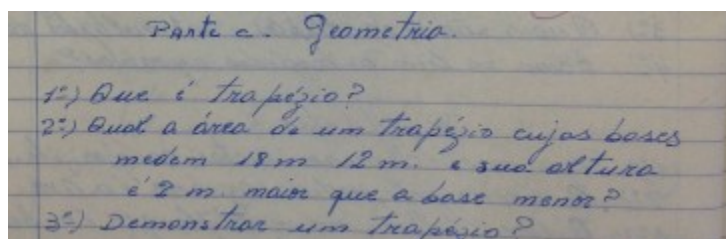 Parte c. Geometria.
1º) Que é trapézio?
2º) Qual a área de um trapézio cujas bases
medem 18 m 12 m. e sua altura
é 2 m. maior que a base menor?
3º) Demonstrar um trapézio?